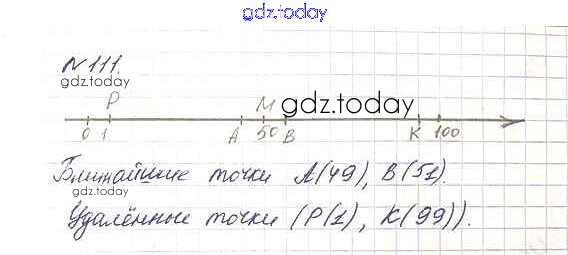 gdz.today
№111.
gdz.today
P M gdz.today
0 1 A 50 B K 100
Ближайшие точки A(49), B(51).
gdz.today
Удалённые точки (P(1), K(99)).